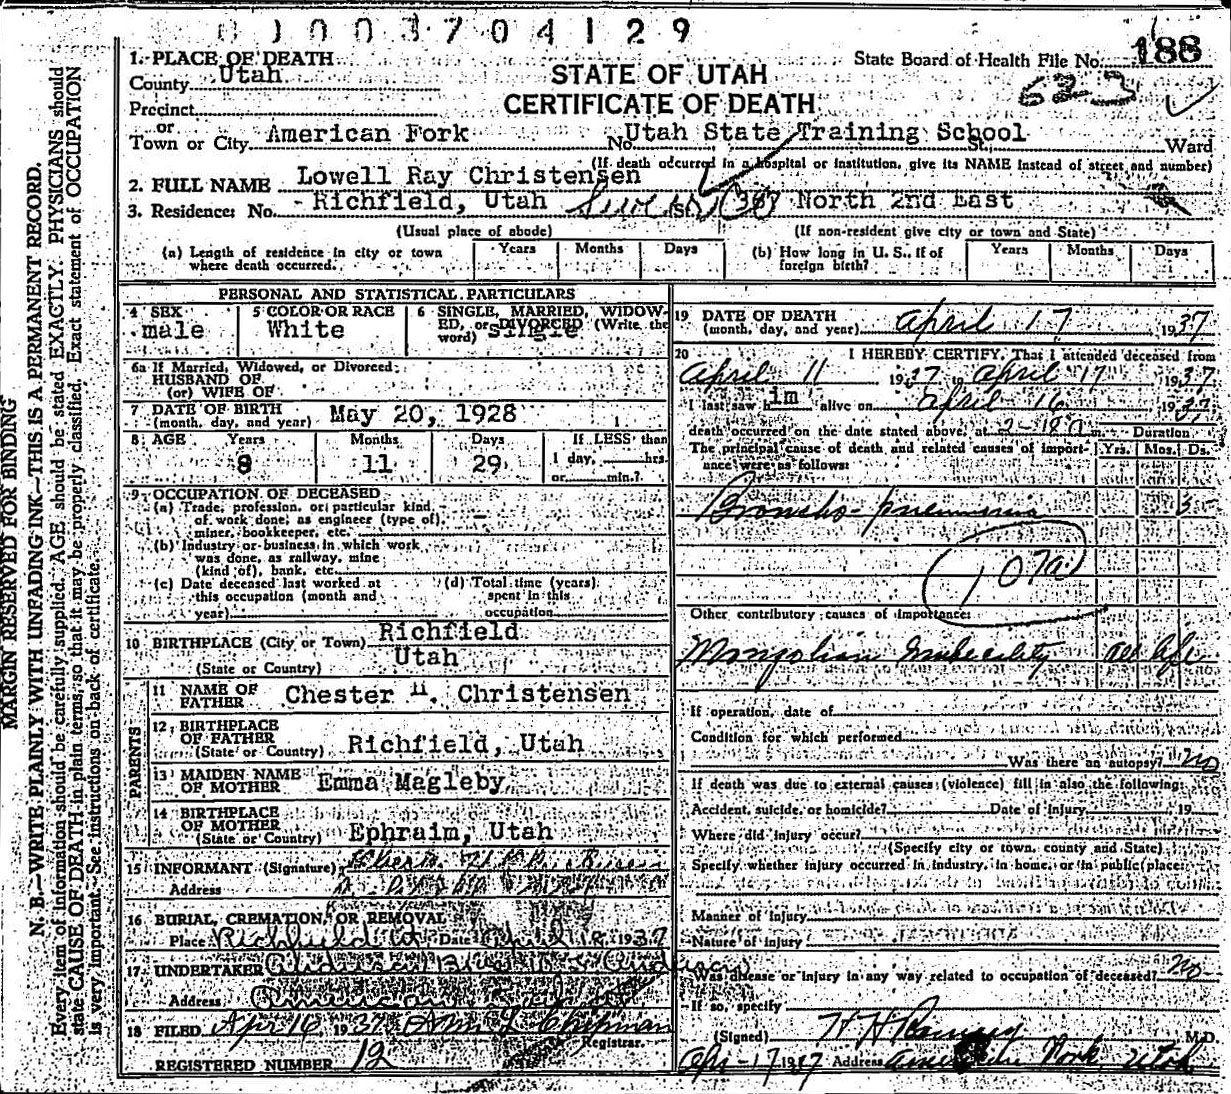 0 1 0 0 3 7 0 4 1 2 9
State Board of Health File No. 188
1. PLACE OF DEATH
County Utah
STATE OF UTAH
CERTIFICATE OF DEATH
Precinct
or
Town or City American Fork No. Utah State Training School St. Ward
(If death occurred in a hospital or institution, give its NAME instead of street and number)
2. FULL NAME Lowell Ray Christensen
3. Residence: No. Richfield, Utah St. 367 North 2nd East
(Usual place of abode) (If non-resident give city or town and State)
(a) Length of residence in city or town where death occurred. Years Months Days (b) How long in U. S., if of foreign birth? Years Months Days
PERSONAL AND STATISTICAL PARTICULARS
4 SEX male
5 COLOR OR RACE White
6 SINGLE, MARRIED, WIDOWED, or DIVORCED (Write the word) single
6a If Married, Widowed, or Divorced
HUSBAND OF
(or) WIFE OF
7 DATE OF BIRTH (month, day, and year) May 20, 1928
8 AGE Years 8 Months 11 Days 29 If LESS than 1 day, hrs. or min.?
9 OCCUPATION OF DECEASED
(a) Trade, profession, or particular kind of work done, as engineer (type of), miner, bookkeeper, etc.
(b) Industry or business in which work was done, as railway, mine (kind of), bank, etc.
(c) Date deceased last worked at this occupation (month and year)
(d) Total time (years) spent in this occupation
10 BIRTHPLACE (City or Town) Richfield
(State or Country) Utah
PARENTS
11 NAME OF FATHER Chester H. Christensen
12 BIRTHPLACE OF FATHER (State or Country) Richfield, Utah
13 MAIDEN NAME OF MOTHER Emma Magleby
14 BIRTHPLACE OF MOTHER (State or Country) Ephraim, Utah
15 INFORMANT (Signature)
Address
16 BURIAL, CREMATION, OR REMOVAL
Place Richfield Ut Date April 18 1937
17 UNDERTAKER Anderson
Address American Fork
18 FILED Apr 16 1937 Chipman
Registrar.
REGISTERED NUMBER 12
19 DATE OF DEATH (month, day, and year) April 17 1937
20 I HEREBY CERTIFY, That I attended deceased from
April 11 1937 to April 17 1937
I last saw him alive on April 16 1937
death occurred on the date stated above, at m. Duration
The principal cause of death and related causes of importance were as follows: Yrs. Mos. Ds.
Broncho-pneumonia 5
107a
Other contributory causes of importance:
Mongolian Imbecility all life
If operation, date of
Condition for which performed
Was there an autopsy? No
If death was due to external causes (violence) fill in also the following:
Accident, suicide, or homicide? Date of Injury 19
Where did injury occur?
(Specify city or town, county and State)
Specify whether injury occurred in industry, in home, or in public place:
Manner of injury
Nature of injury
Was disease or injury in any way related to occupation of deceased? No
If so, specify
(Signed) M.D.
Apr-17 1937 Address American Fork, Utah
MARGIN RESERVED FOR BINDING
N. B.—WRITE PLAINLY WITH UNFADING INK—THIS IS A PERMANENT RECORD.
Every item of information should be carefully supplied. AGE should be stated EXACTLY. PHYSICIANS should
state CAUSE OF DEATH in plain terms, so that it may be properly classified. Exact statement of OCCUPATION
is very important. See instructions on back of certificate.